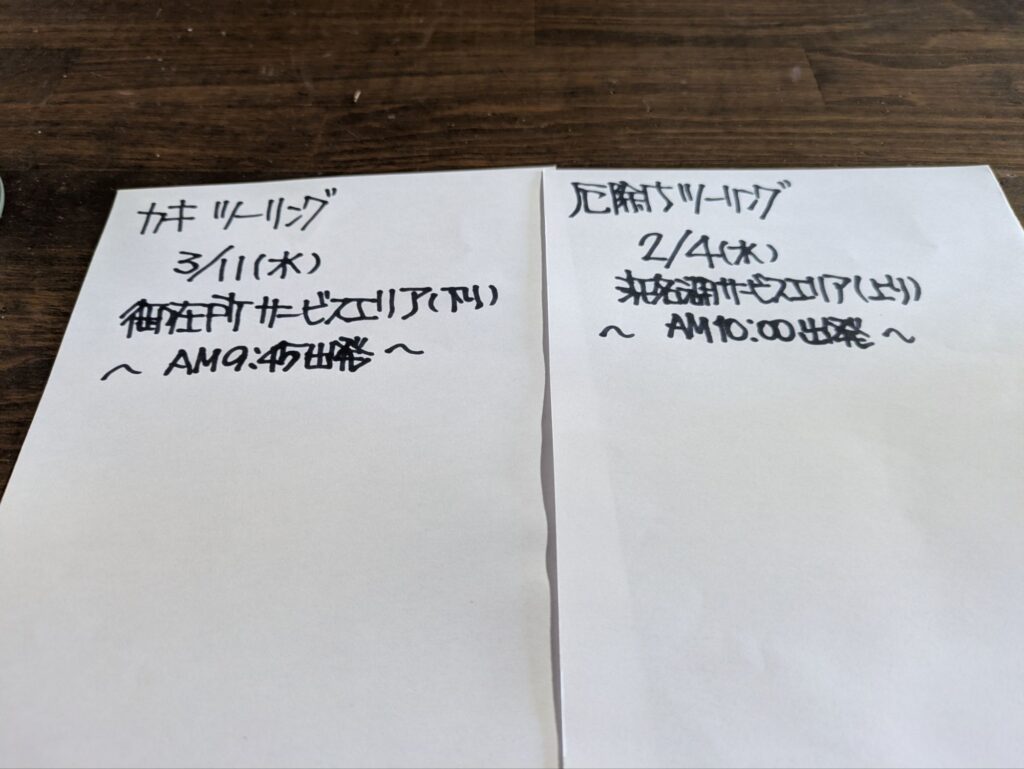 カキツーリング
3/11(水)
御在所サービスエリア(下り)
～ AM9:45出発 ～
厄除けツーリング
2/4(水)
浜名湖サービスエリア(上り)
～ AM10:00出発 ～